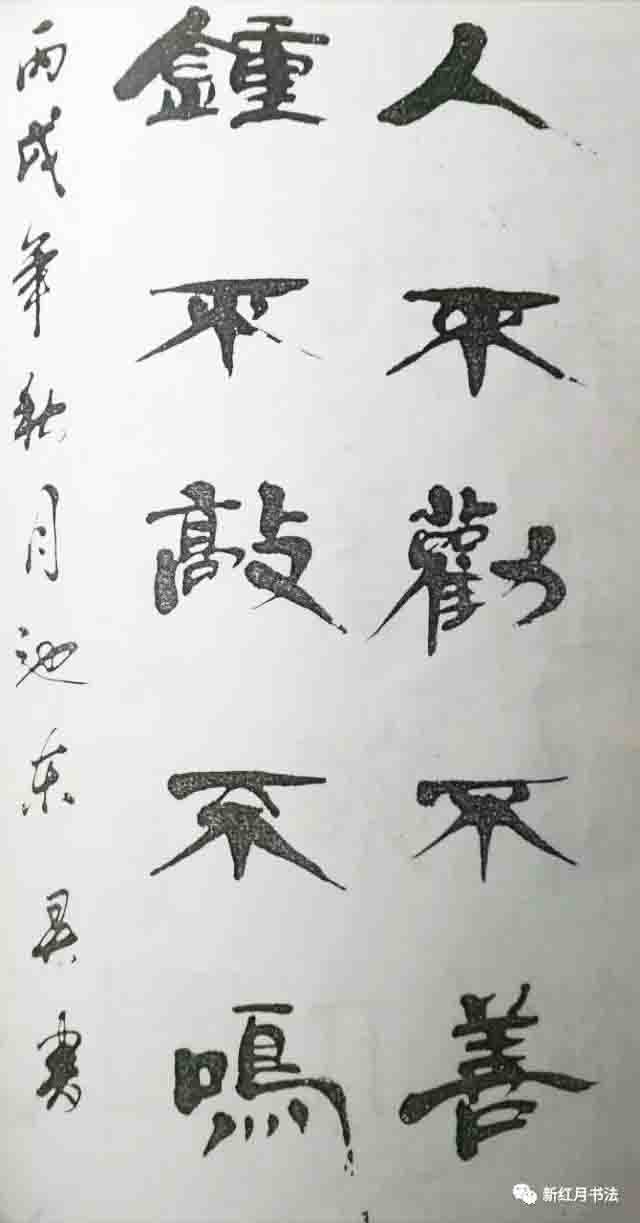 人不勸不善
鍾不敲不鳴
丙戌年秋月池东吴
新红月书法
1